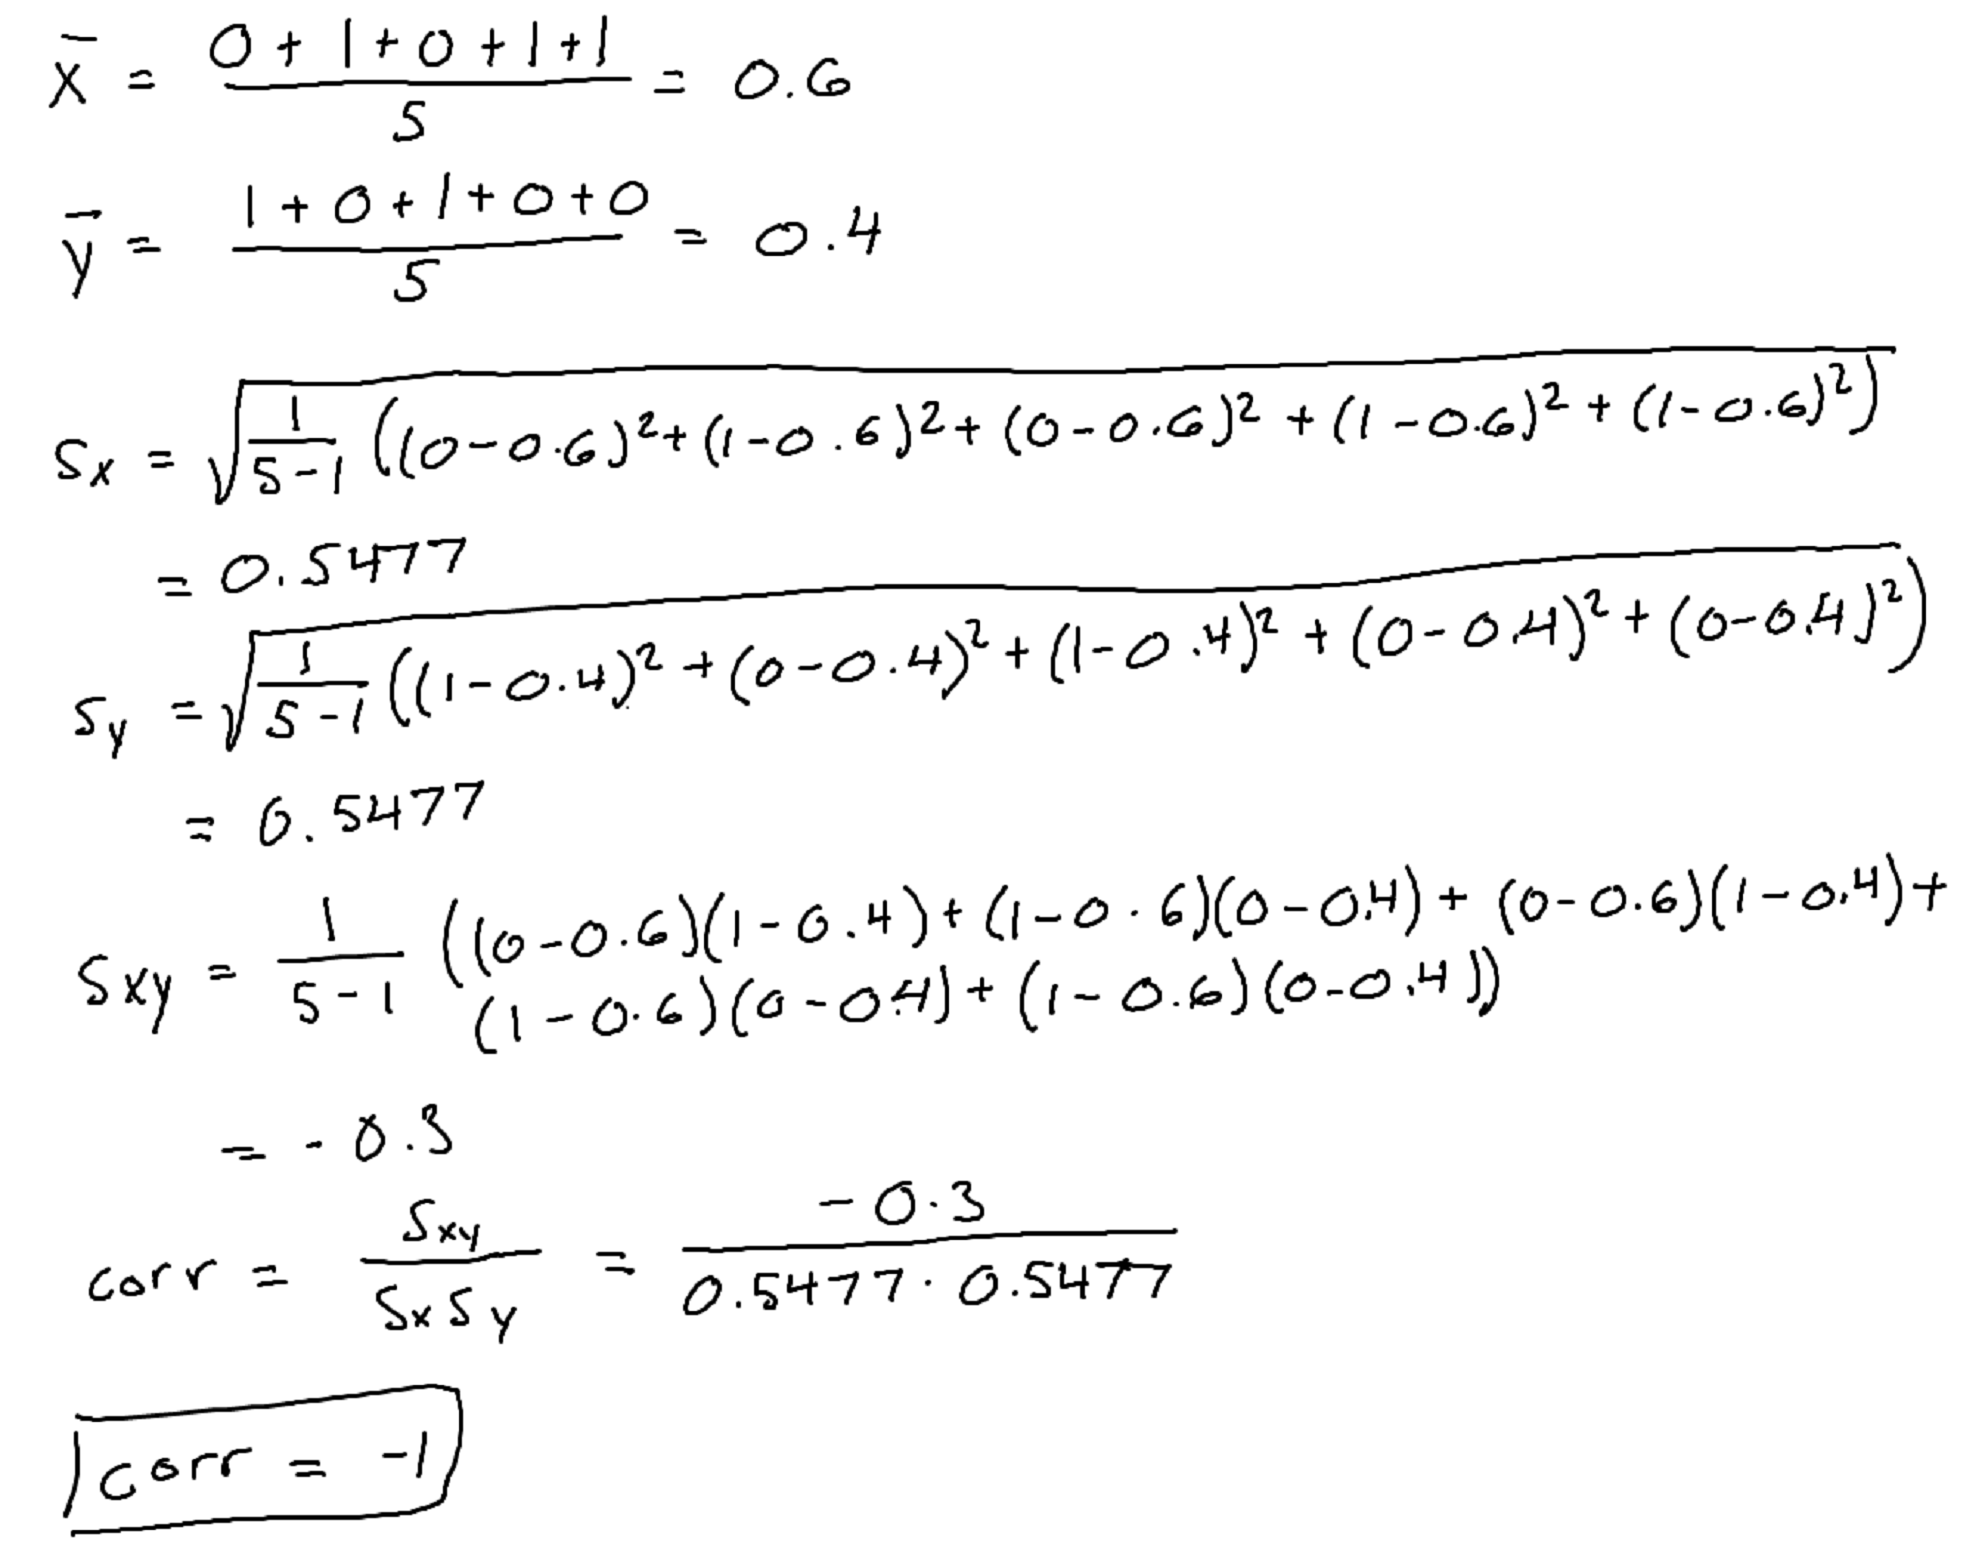 x̄ = (0+1+0+1+1)/5 = 0.6
ȳ = (1+0+1+0+0)/5 = 0.4
Sx = √(1/(5-1) ((0-0.6)²+(1-0.6)²+(0-0.6)²+(1-0.6)²+(1-0.6)²))
= 0.5477
Sy = √(1/(5-1) ((1-0.4)²+(0-0.4)²+(1-0.4)²+(0-0.4)²+(0-0.4)²))
= 0.5477
Sxy = 1/(5-1) ((0-0.6)(1-0.4)+(1-0.6)(0-0.4)+(0-0.6)(1-0.4)+
(1-0.6)(0-0.4)+(1-0.6)(0-0.4))
= -0.3
corr = Sxy/(SxSy) = -0.3/(0.5477·0.5477)
corr = -1